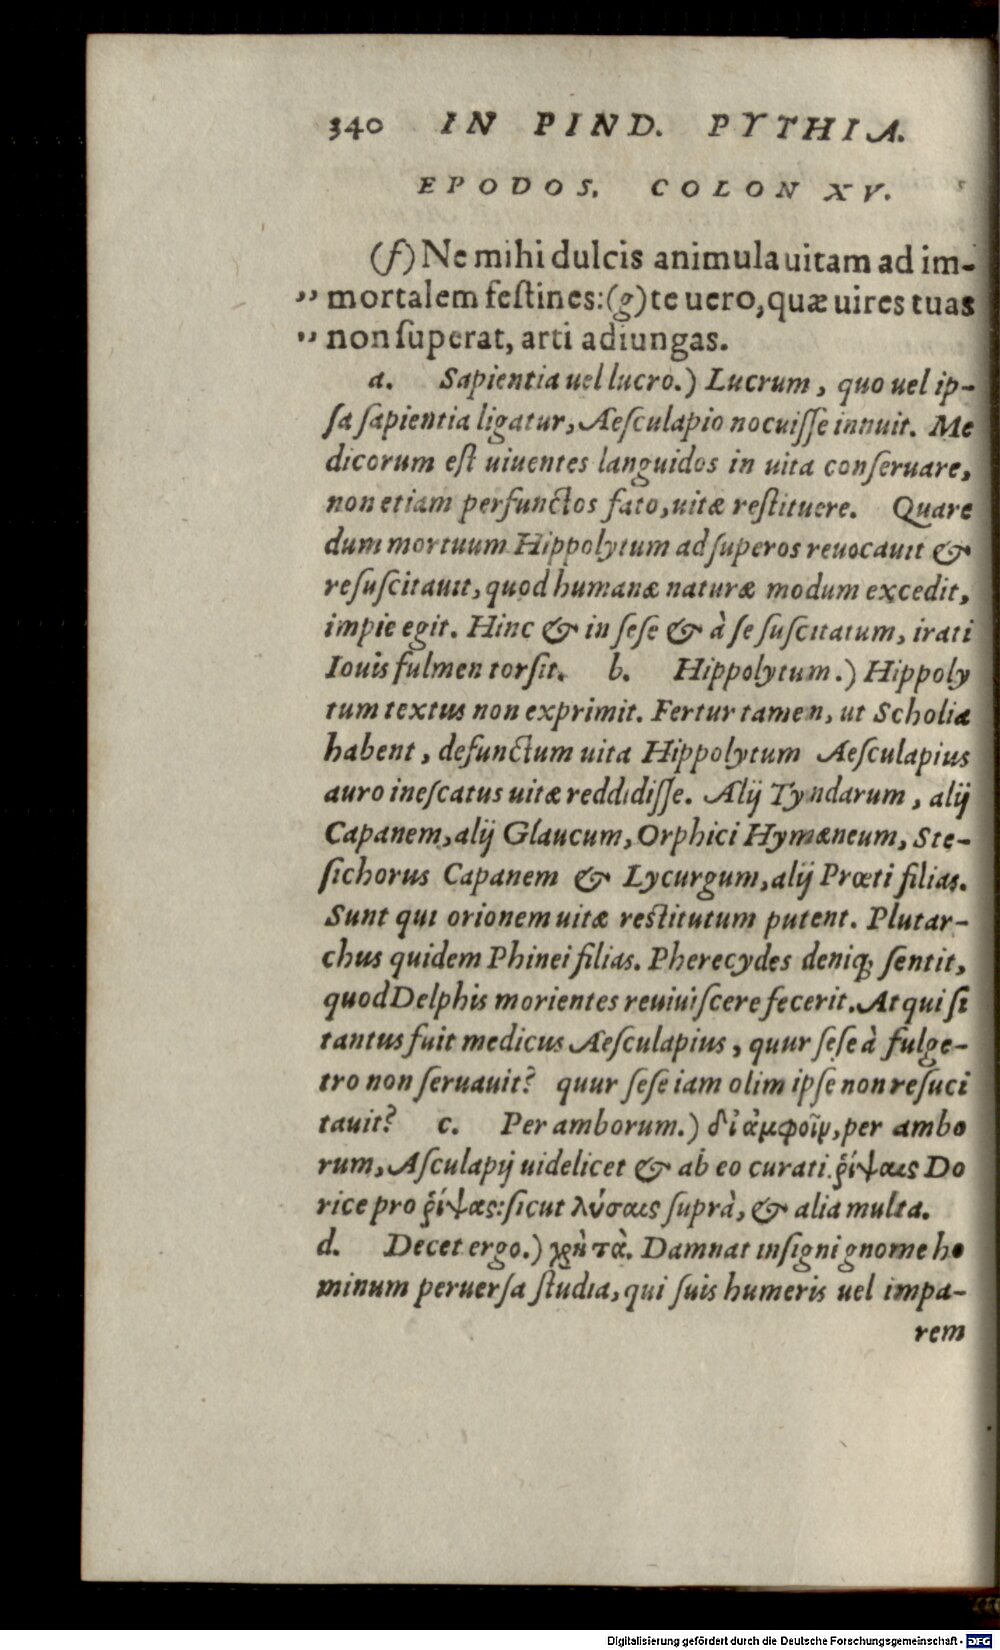 340 IN PIND. PYTHIA.
EPODOS. COLON XV.
(f) Ne mihi dulcis animula uitam ad im-
„ mortalem feſtines: (g) te uero, quæ uires tuas
„ non ſuperat, arti adiungas.
a. Sapientia uel lucro.) Lucrum, quo uel ip-
ſa ſapientia ligatur, Aeſculapio nocuiſſe innuit. Me
dicorum eſt uiuentes languidos in uita conſeruare,
non etiam perfunctos fato, uitæ reſtituere. Quare
dum mortuum Hippolytum ad ſuperos reuocauit &
reſuſcitauit, quod humanæ naturæ modum excedit,
impie egit. Hinc & in ſeſe & à ſe ſuſcitatum, irati
Iouis fulmen torſit. b. Hippolytum.) Hippoly
tum textus non exprimit. Fertur tamen, ut Scholia
habent, defunctum uita Hippolytum Aeſculapius
auro ineſcatus uitæ reddidiſſe. Alij Tyndarum, alij
Capanem, alij Glaucum, Orphici Hymæneum, Ste-
ſichorus Capanem & Lycurgum, alij Prœti filias.
Sunt qui orionem uitæ reſtitutum putent. Plutar-
chus quidem Phinei filias. Pherecydes deniq; ſentit,
quod Delphis morientes reuiuiſcere fecerit. At qui ſi
tantus fuit medicus Aeſculapius, quur ſeſe à fulge-
tro non ſeruauit? quur ſeſe iam olim ipſe non reſuci
tauit? c. Per amborum.) δι᾽ ἀμφοῖν, per ambo
rum, Aſculapij uidelicet & ab eo curati. ῥίψαις Do
rice pro ῥίψας: ſicut λύσαις ſuprà, & alia multa.
d. Decet ergo.) χρὴ τὰ. Damnat inſigni gnome ho
minum peruerſa ſtudia, qui ſuis humeris uel impa-
rem
Digitalisierung gefördert durch die Deutsche Forschungsgemeinschaft - DFG